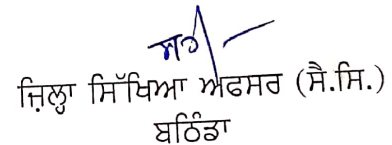 ਸਹੀ/-
ਜ਼ਿਲ੍ਹਾ ਸਿੱਖਿਆ ਅਫਸਰ (ਸੈ.ਸਿ.)
ਬਠਿੰਡਾ